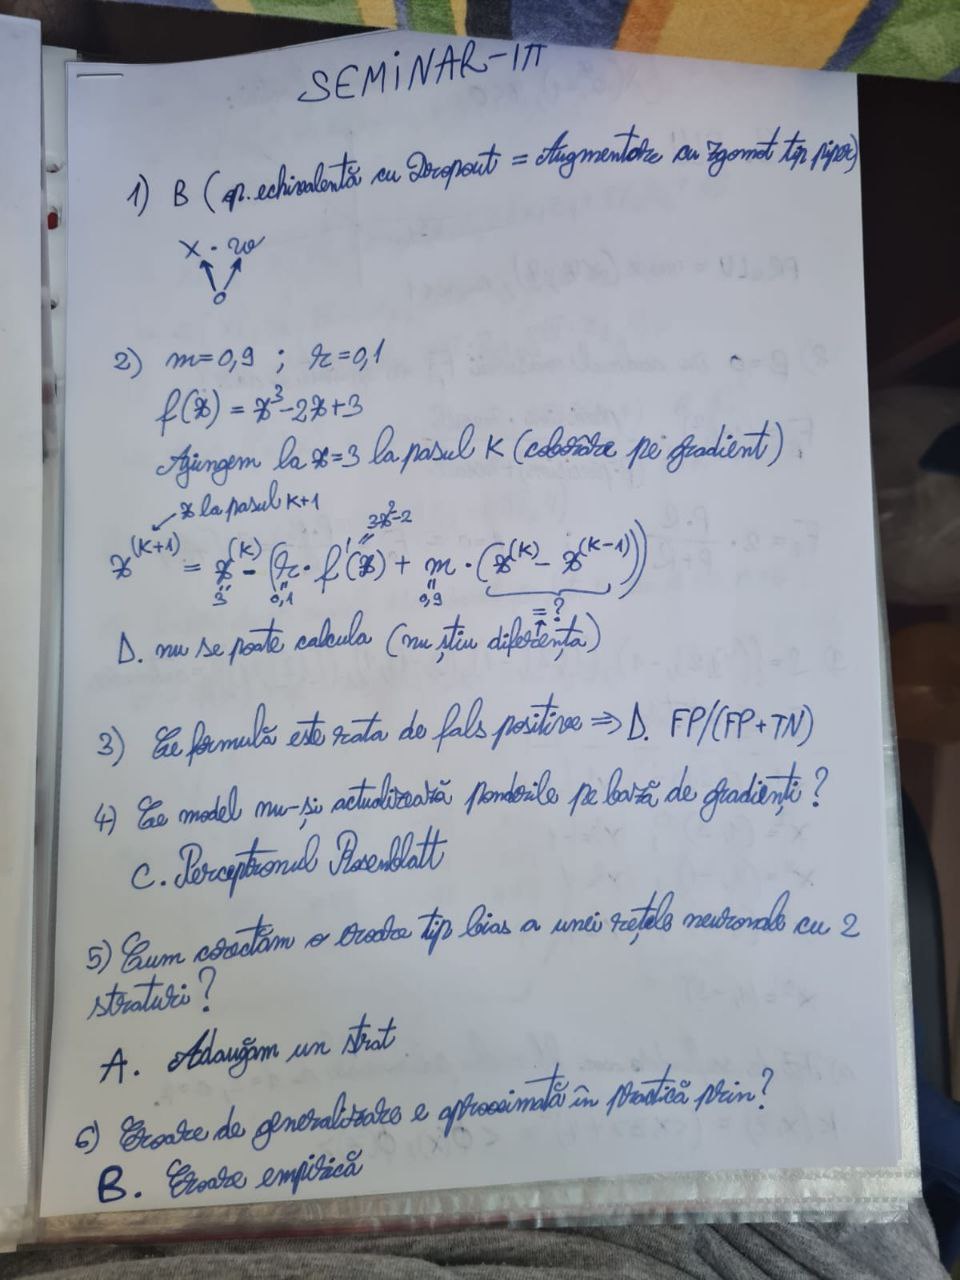 SEMINAR-III
1) B (op. echivalentă cu Dropout = Augmentare cu zgomot tip piper)
X . w
0
2) m=0,9 ; r=0,1
f(x) = x³-2x+3
Ajungem la x=3 la pasul K (coborâre pe gradient)
x la pasul K+1
3x²-2
x^(K+1) = x^(K) - (r · f'(x) + m · (x^(K) - x^(K-1)))
3 0,1 0,9 =?
D. nu se poate calcula (nu știu diferența)
3) Ce formulă este rata de fals pozitive => D. FP/(FP+TN)
4) Ce model nu-și actualizează ponderile pe bază de gradienți?
C. Perceptronul Rosenblatt
5) Cum corectăm o eroare tip bias a unei rețele neuronale cu 2
straturi?
A. Adaugăm un strat
6) Eroare de generalizare e aproximată în practică prin?
B. Eroare empirică